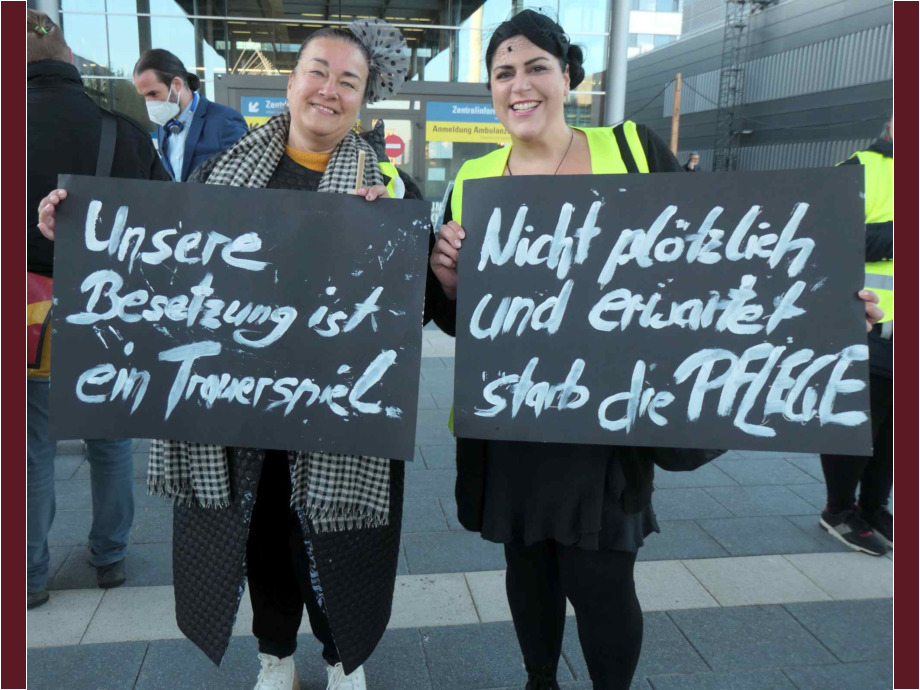 Zentralinfor
Anmeldung Ambulan
Unsere
Besetzung ist
ein Trauerspiel
Nicht plötzlich
und erwartet
starb die PFLEGE